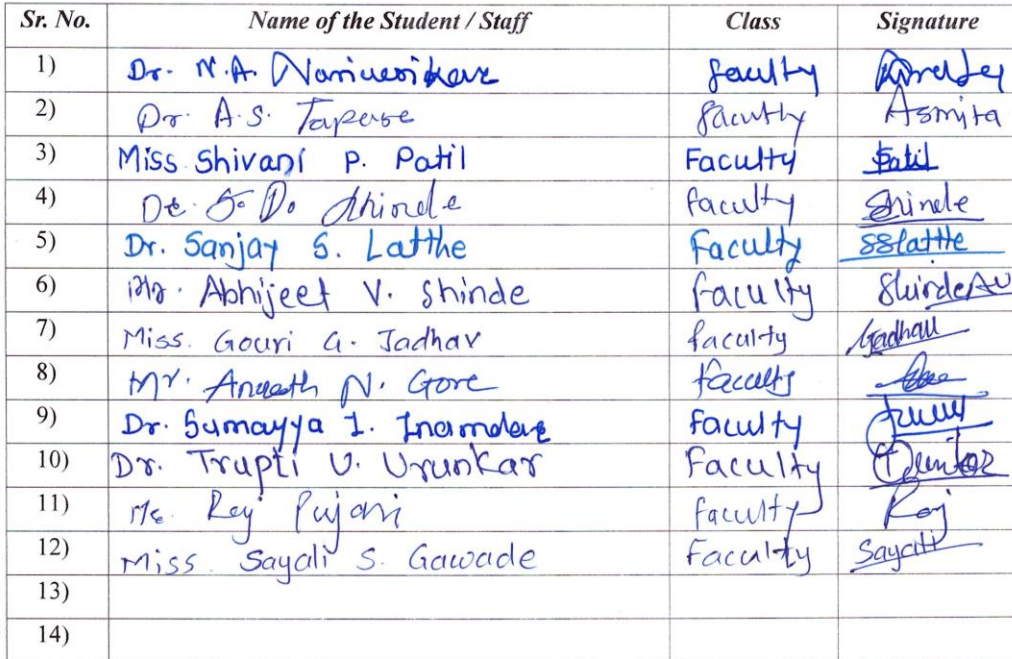 Sr. No. Name of the Student / Staff Class Signature
1) Dr. N.A. Narinesikar faculty
2) Dr. A.S. Tapase faculty Asmita
3) Miss Shivani P. Patil Faculty Patil
4) Dr. S. D. Shinde faculty Shinde
5) Dr. Sanjay S. Latthe Faculty SSLatthe
6) Mr. Abhijeet V. Shinde faculty ShindeAV
7) Miss. Gouri G. Jadhav faculty GJadhav
8) Mr. N. Gore faculty
9) Dr. Sumayya I. Inamdar Faculty
10) Dr. Trupti U. Urunkar Faculty
11) Raj Pujari faculty Raj
12) Miss. Sayali S. Gawade Faculty Sayali
13)
14)